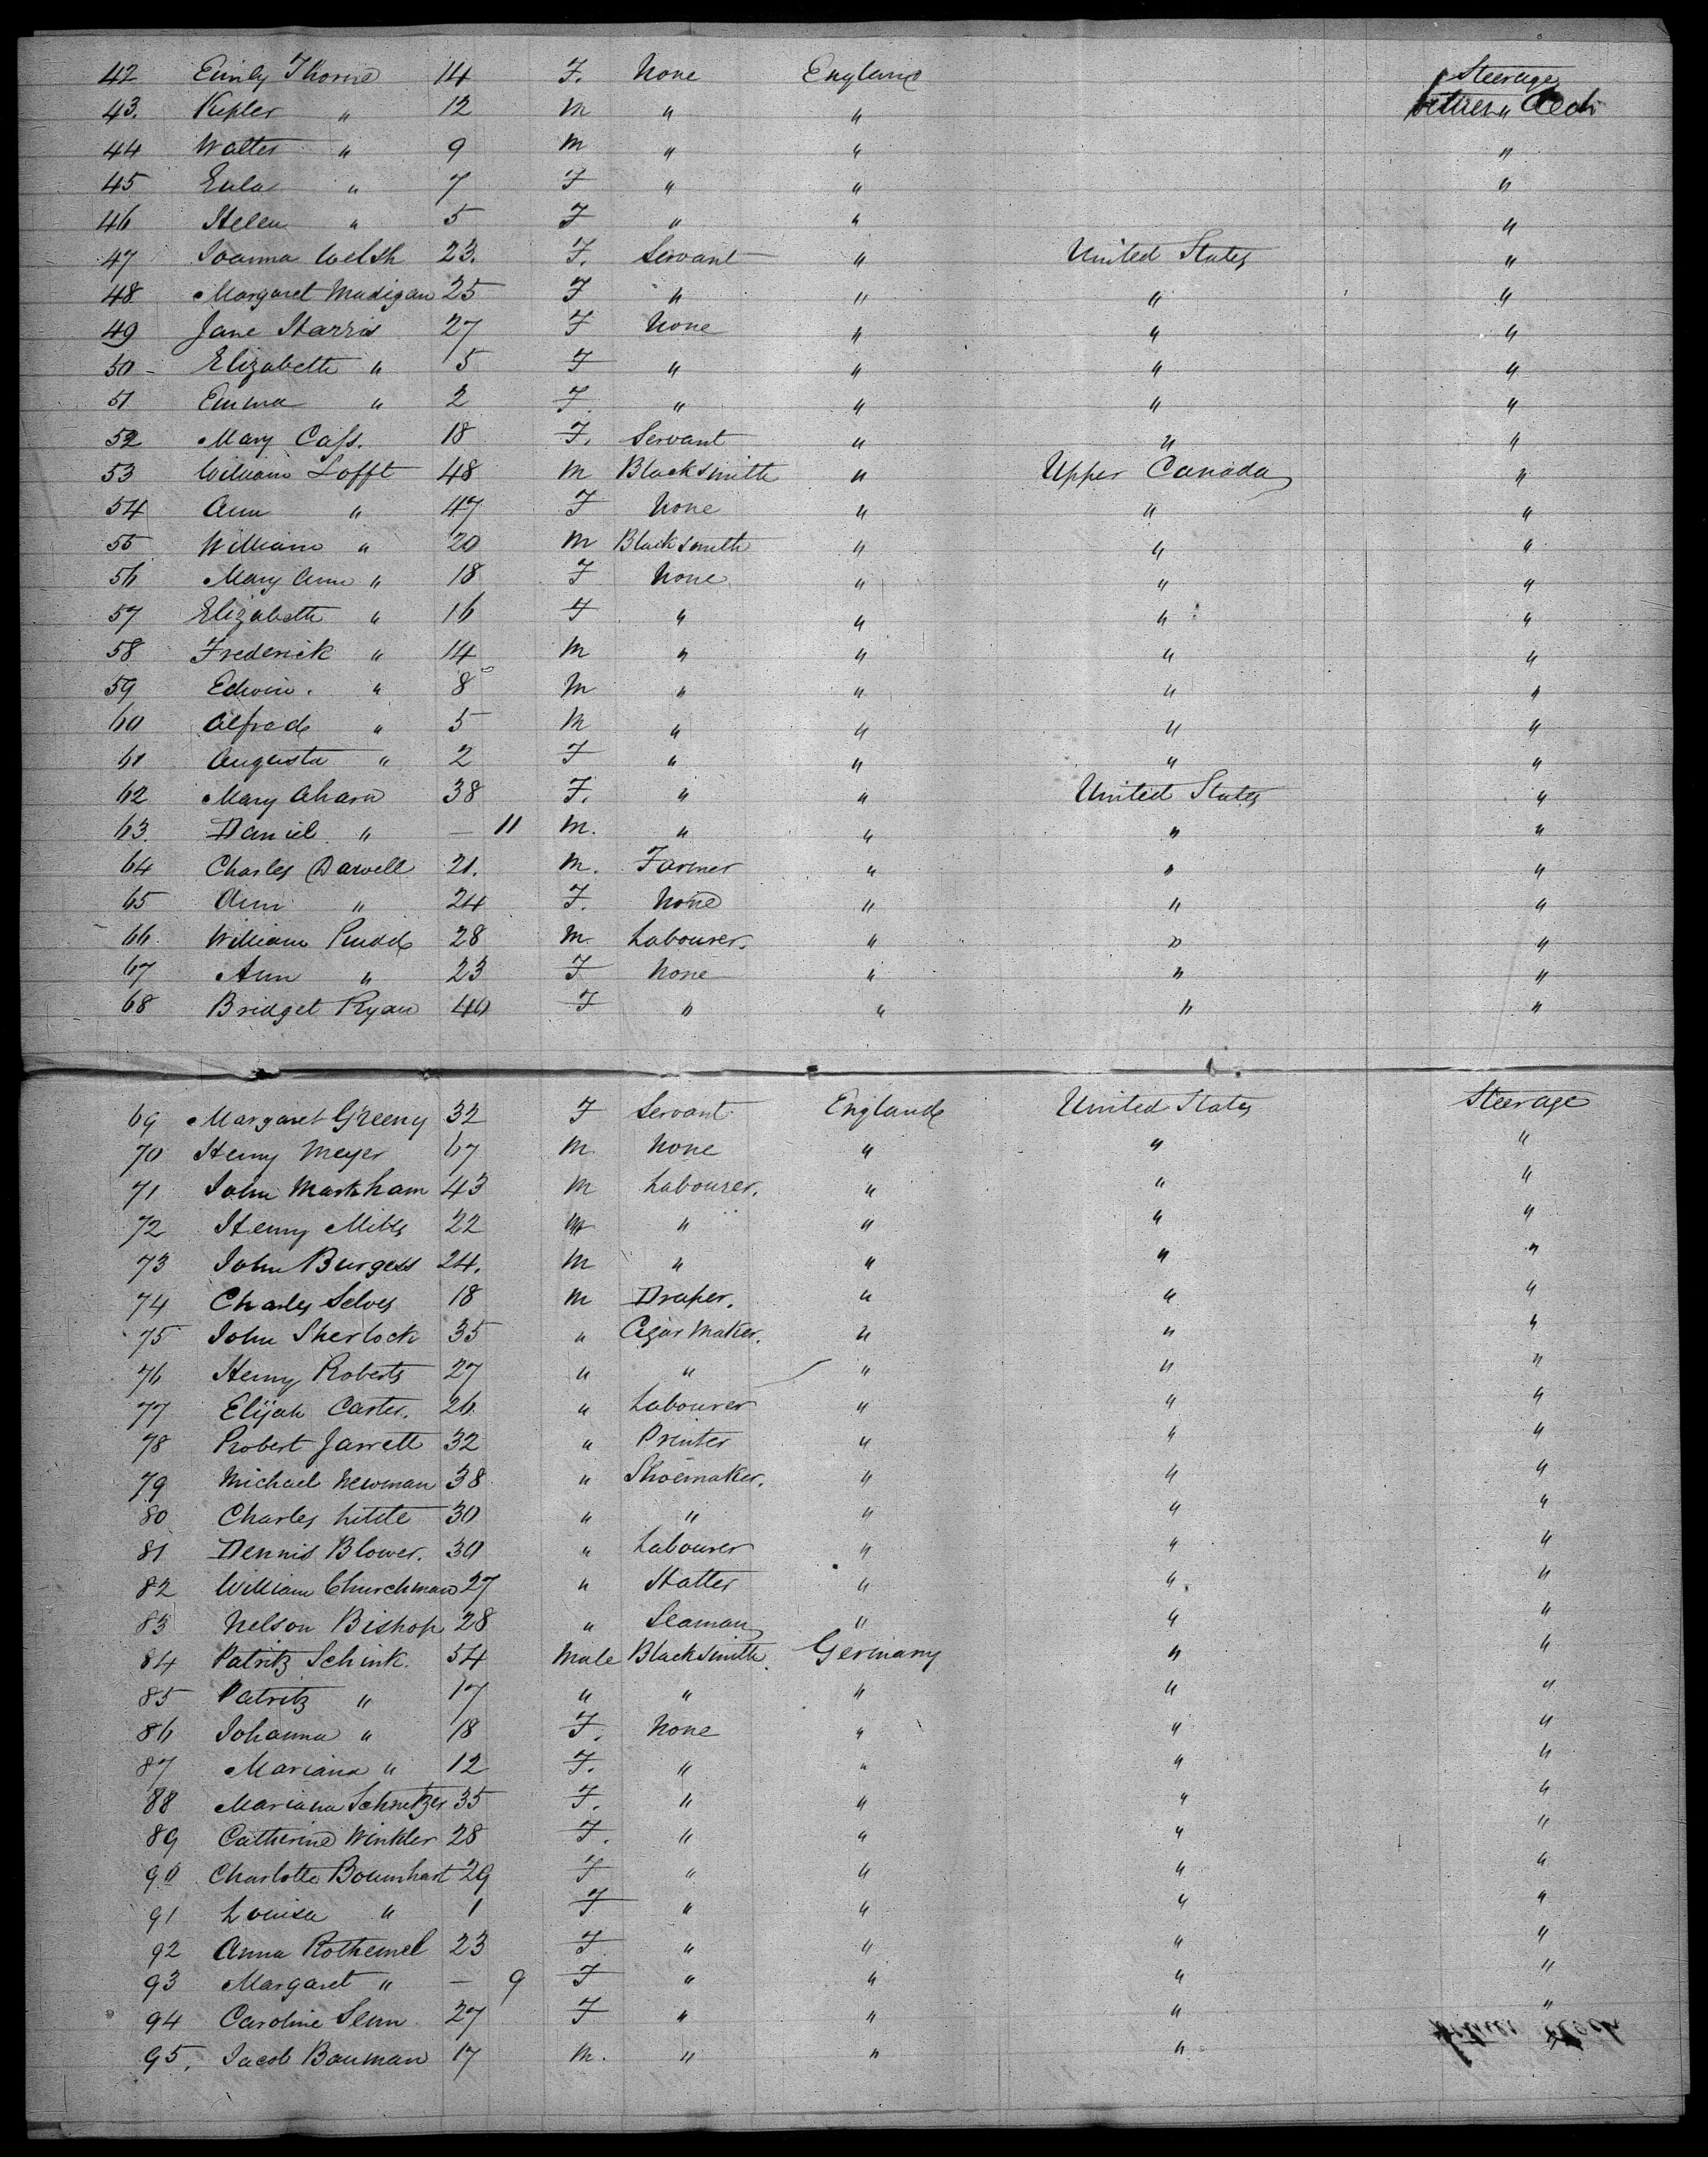 42 Emily Thorne 14 F. None England Steerage
43. Kepler " 12 M " " between Deck
44 Walter " 9 M " " "
45 Eula " 7 F " " "
46 Helen " 5 F " " "
47 Joanna Welsh 23. F. Servant " United States "
48 Margaret Madigan 25 F " " " "
49 Jane Harris 27 F None " " "
50 Elizabeth " 5 F " " " "
51 Emma " 2 F " " " "
52 Mary Cass. 18 F. Servant " " "
53 William Lofft 48 M Blacksmith " Upper Canada "
54 Ann " 47 F None " " "
55 William " 20 M Blacksmith " " "
56 Mary Ann " 18 F None " " "
57 Elizabeth " 16 F " " " "
58 Frederick " 14 M " " " "
59 Edwin. " 8 M " " " "
60 Alfred " 5 M " " " "
61 Augusta " 2 F " " " "
62 Mary Ahara 38 F. " " United States "
63. Daniel " — 11 M. " " " "
64 Charles Darvell 21. M. Farmer " " "
65 Ann " 24 F. None " " "
66. William Pudd 28 M. Labourer. " " "
67 Ann " 23 F None " " "
68 Bridget Ryan 40 F " " " "
69 Margaret Greeny 32 F Servant England United States Steerage
70 Henry Meyer 67 M. None " " "
71 John Markham 43 M Labourer. " " "
72 Henry Mills 22 M " " " "
73 John Burgess 24. M " " " "
74 Charles Selves 18 M Draper. " " "
75 John Sherlock 35 " Cigar Maker. " " "
76 Henry Roberts 27 " " " " "
77 Elijah Carter. 26 " Labourer " " "
78 Robert Jarrett 32 " Printer " " "
79 Michael Newman 38 " Shoemaker. " " "
80 Charles Little 30 " " " " "
81 Dennis Blower. 30 " Labourer " " "
82 William Churchman 27 " Hatter " " "
83 Nelson Bishop 28 " Seaman " " "
84 Patritz Schink. 54 Male Blacksmith. Germany " "
85 Patritz " 17 " " " " "
86 Johanna " 18 F. None " " "
87 Mariana " 12 F. " " " "
88 Mariana Schnetzer 35 F. " " " "
89 Catherine Winkler 28 F. " " " "
90 Charlotte Boumhart 29 F " " " "
91 Louisa " 1 F " " " "
92 Anna Rothemel 23 F " " " "
93 Margaret " — 9 F " " " "
94 Caroline Senn 27 F " " " "
95. Jacob Bauman 17 M. " " "